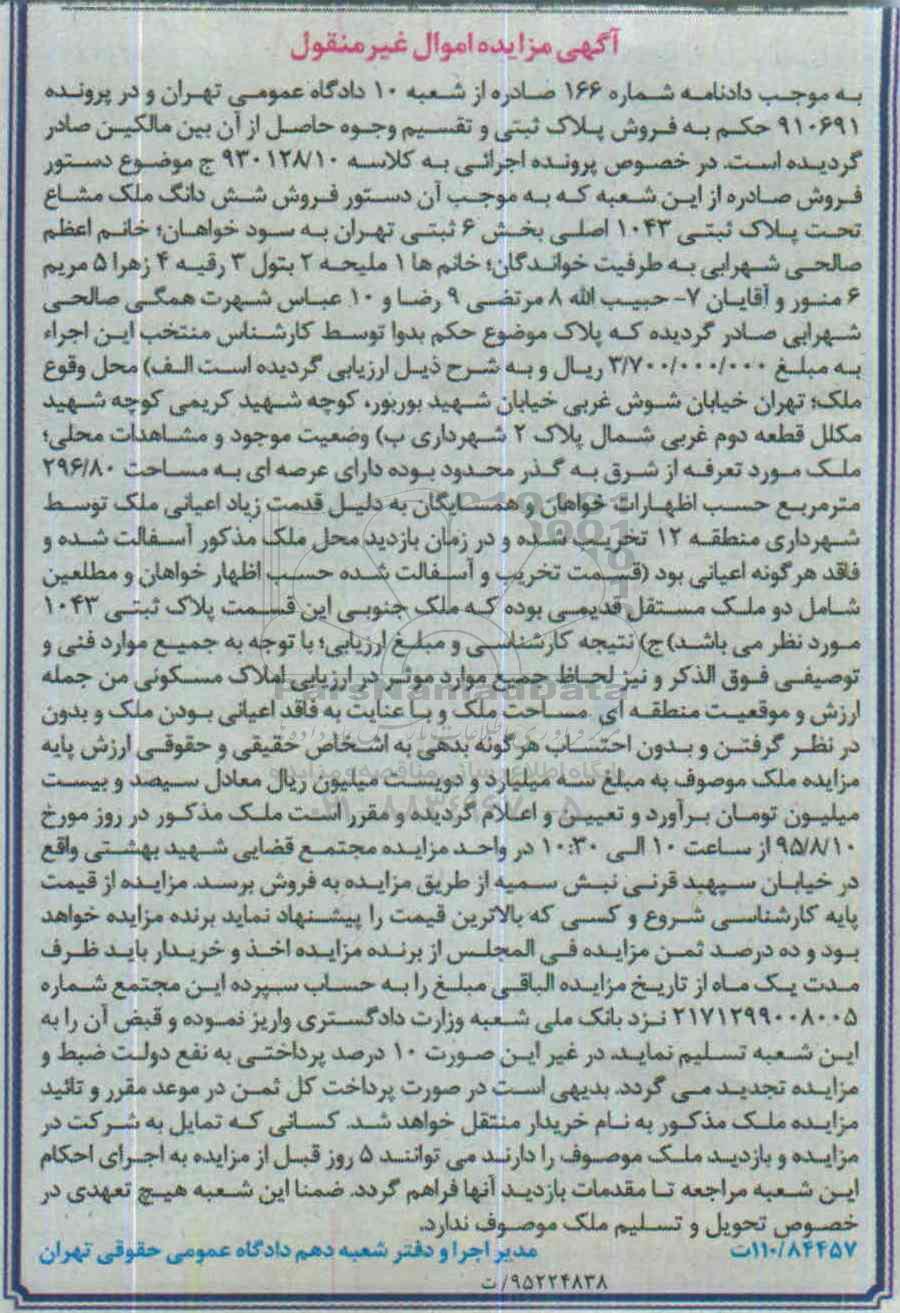 آگهی مزایده اموال غیر منقول
به موجب دادنامه شماره ۱۶۶ صادره از شعبه ۱۰ دادگاه عمومی تهران و در پرونده
۹۱۰۶۹۱ حکم به فروش پلاک ثبتی و تقسیم وجوه حاصل از آن بین مالکین صادر
گردیده است. در خصوص پرونده اجرائی به کلاسه ۹۳۰۱۲۸/۱۰ ج موضوع دستور
فروش صادره از این شعبه که به موجب آن دستور فروش شش دانگ ملک مشاع
تحت پلاک ثبتی ۱۰۴۳ اصلی بخش ۶ ثبتی تهران به سود خواهان؛ خانم اعظم
صالحی شهرابی به طرفیت خواندگان؛ خانم ها ۱ ملیحه ۲ بتول ۳ رقیه ۴ زهرا ۵ مریم
۶ منور و آقایان ۷- حبیب الله ۸ مرتضی ۹ رضا و ۱۰ عباس شهرت همگی صالحی
شهرابی صادر گردیده که پلاک موضوع حکم بدوا توسط کارشناس منتخب این اجراء
به مبلغ ۳/۷۰۰/۰۰۰/۰۰۰ ریال و به شرح ذیل ارزیابی گردیده است الف) محل وقوع
ملک؛ تهران خیابان شوش غربی خیابان شهید بوربور، کوچه شهید کریمی کوچه شهید
مکلل قطعه دوم غربی شمال پلاک ۲ شهرداری ب) وضعیت موجود و مشاهدات محلی؛
ملک مورد تعرفه از شرق به گذر محدود بوده دارای عرصه ای به مساحت ۲۹۶/۸۰
مترمربع حسب اظهارات خواهان و همسایگان به دلیل قدمت زیاد اعیانی ملک توسط
شهرداری منطقه ۱۲ تخریب شده و در زمان بازدید محل ملک مذکور آسفالت شده و
فاقد هرگونه اعیانی بود (قسمت تخریب و آسفالت شده حسب اظهار خواهان و مطلعین
شامل دو ملک مستقل قدیمی بوده که ملک جنوبی این قسمت پلاک ثبتی ۱۰۴۳
مورد نظر می باشد) ج) نتیجه کارشناسی و مبلغ ارزیابی؛ با توجه به جمیع موارد فنی و
توصیفی فوق الذکر و نیز لحاظ جمیع موارد موثر در ارزیابی املاک مسکونی من جمله
ارزش و موقعیت منطقه ای مساحت ملک و با عنایت به فاقد اعیانی بودن ملک و بدون
در نظر گرفتن و بدون احتساب هرگونه بدهی به اشخاص حقیقی و حقوقی ارزش پایه
مزایده ملک موصوف به مبلغ سه میلیارد و دویست میلیون ریال معادل سیصد و بیست
میلیون تومان برآورد و تعیین و اعلام گردیده و مقرر است ملک مذکور در روز مورخ
۹۵/۸/۱۰ از ساعت ۱۰ الی ۱۰:۳۰ در واحد مزایده مجتمع قضایی شهید بهشتی واقع
در خیابان سپهبد قرنی نبش سمیه از طریق مزایده به فروش برسد. مزایده از قیمت
پایه کارشناسی شروع و کسی که بالاترین قیمت را پیشنهاد نماید برنده مزایده خواهد
بود و ده درصد ثمن مزایده فی المجلس از برنده مزایده اخذ و خریدار باید ظرف
مدت یک ماه از تاریخ مزایده الباقی مبلغ را به حساب سپرده این مجتمع شماره
۲۱۷۱۲۹۹۰۰۸۰۰۵ نزد بانک ملی شعبه وزارت دادگستری واریز نموده و قبض آن را به
این شعبه تسلیم نماید. در غیر این صورت ۱۰ درصد پرداختی به نفع دولت ضبط و
مزایده تجدید می گردد. بدیهی است در صورت پرداخت کل ثمن در موعد مقرر و تائید
مزایده ملک مذکور به نام خریدار منتقل خواهد شد. کسانی که تمایل به شرکت در
مزایده و بازدید ملک موصوف را دارند می توانند ۵ روز قبل از مزایده به اجرای احکام
این شعبه مراجعه تا مقدمات بازدید آنها فراهم گردد. ضمنا این شعبه هیچ تعهدی در
خصوص تحویل و تسلیم ملک موصوف ندارد.
۱۱۰/۸۴۴۵۷ت مدیر اجرا و دفتر شعبه دهم دادگاه عمومی حقوقی تهران
۹۵۲۲۴۸۳۸/ت
ParsNamadData